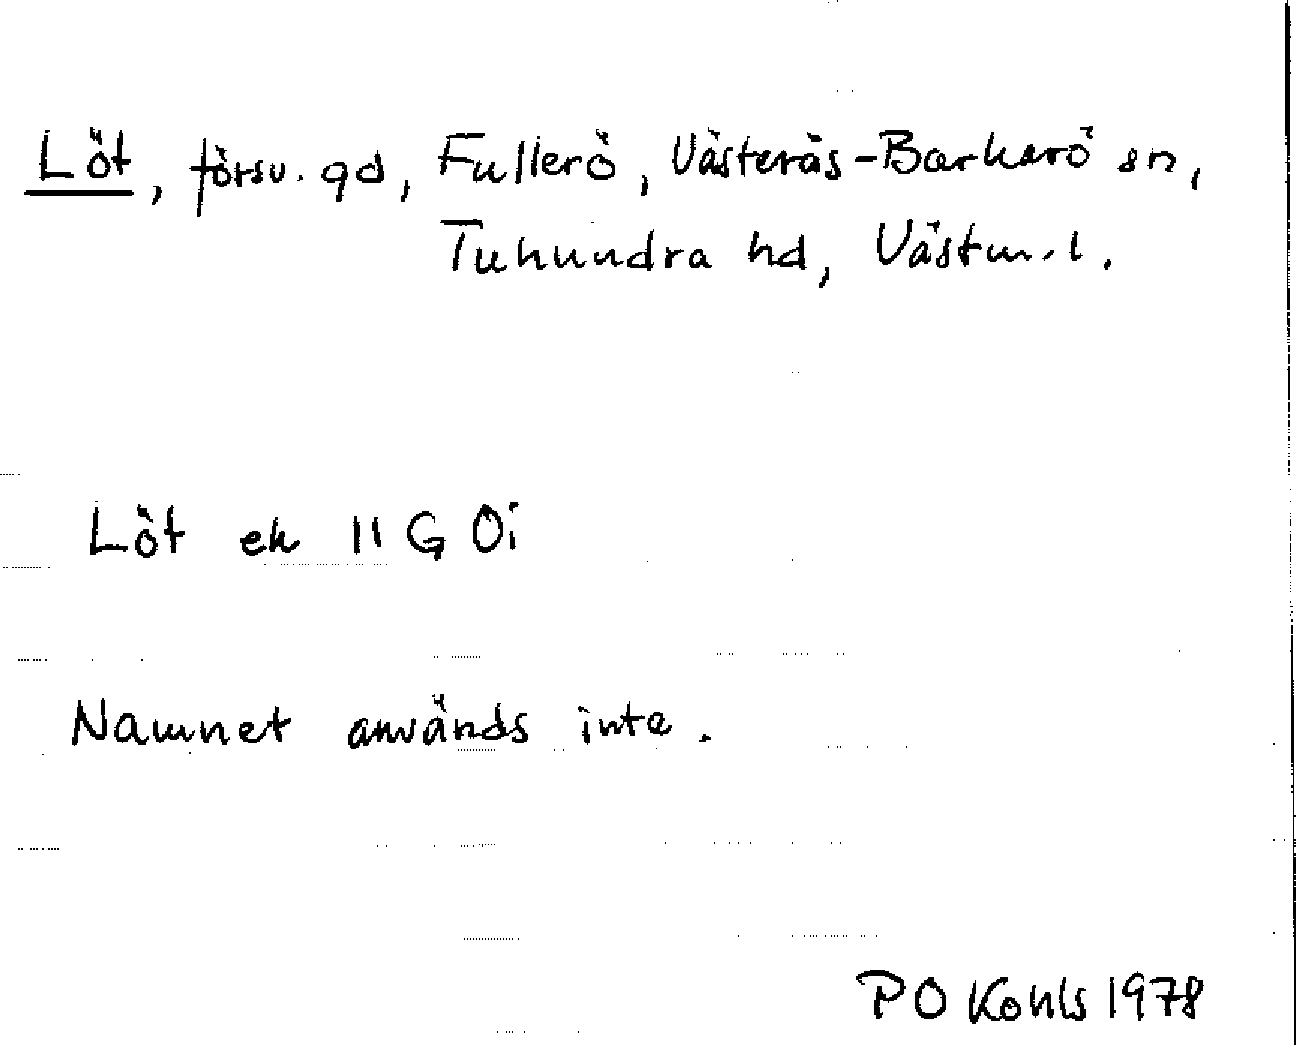 Löt, försv. gd, Fullerö, Västerås-Barkarö sn,
Tuhundra hd, Västm. l.
Löt ek 11 G 0i
Namnet används inte.
PO Kohls 1978